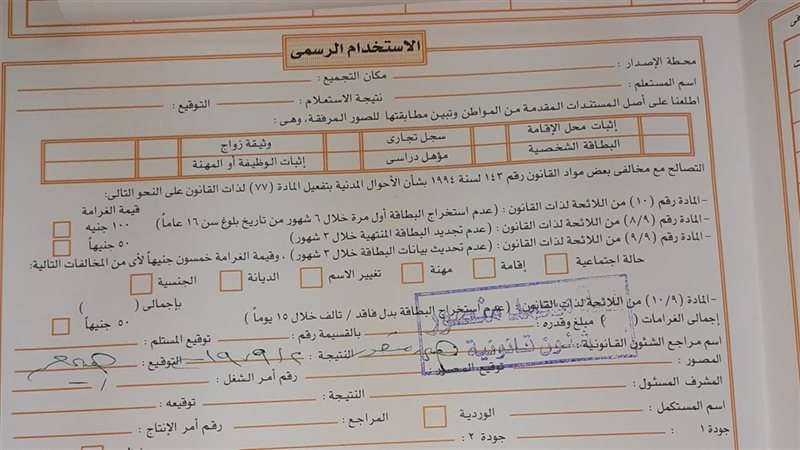 الاستخدام الرسمى
محطة الإصدار : مكان التجميع :
اسم المستعلم : نتيجة الاستعلام : التوقيع :
اطلعنا على أصل المستندات المقدمة من المواطن وتبين مطابقتها للصور المرفقة، وهى :
إثبات محل الإقامة سجل تجارى وثيقة زواج
البطاقة الشخصية مؤهل دراسى إثبات الوظيفة أو المهنة
التصالح مع مخالفى بعض مواد القانون رقم ١٤٣ لسنة ١٩٩٤ بشأن الأحوال المدنية بتفعيل المادة (٧٧) لذات القانون على النحو التالى:
قيمة الغرامة
- المادة رقم (١٠) من اللائحة لذات القانون : (عدم استخراج البطاقة أول مرة خلال ٦ شهور من تاريخ بلوغ سن ١٦ عاماً) ١٠٠ جنيه
- المادة رقم (٨/٩) من اللائحة لذات القانون : (عدم تجديد البطاقة المنتهية خلال ٣ شهور) ٥٠ جنيهاً
- المادة رقم (٩/٩) من اللائحة لذات القانون : (عدم تحديث بيانات البطاقة خلال ٣ شهور) ، وقيمة الغرامة خمسون جنيهاً لأى من المخالفات التالية:
حالة اجتماعية إقامة مهنة تغيير الاسم الديانة الجنسية
بإجمالى ( )
- المادة رقم (١٠/٩) من اللائحة لذات القانون : (عدم استخراج البطاقة بدل فاقد / تالف خلال ١٥ يوماً) ٥٠ جنيهاً
إجمالى الغرامات ( ) مبلغ وقدره : بالقسيمة رقم : توقيع المستلم :
اسم مراجع الشئون القانونية : النتيجة : التوقيع :
شئون قانونية
المصور : توقيع المصور : رقم أمر الشغل :
المشرف المسئول : النتيجة : توقيعه :
اسم المستكمل : الوردية : المراجع : رقم أمر الإنتاج :
جودة ١ : جودة ٢ :